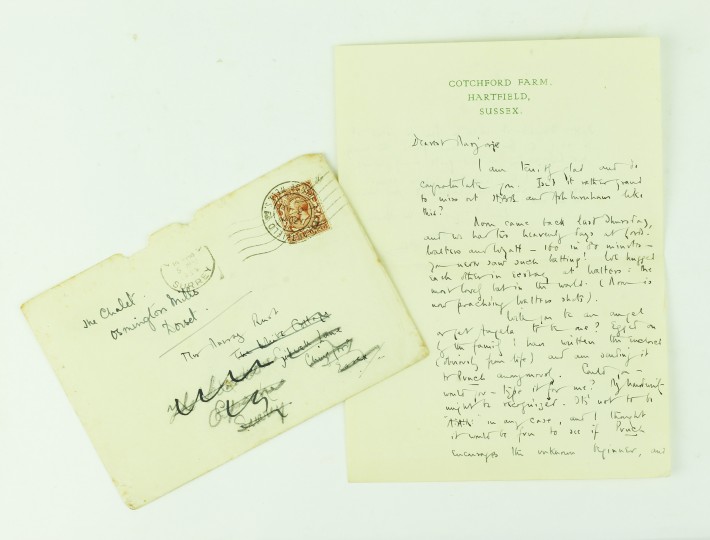 COTCHFORD FARM.
HARTFIELD,
SUSSEX.
Dearest Marjorie
I am terribly glad and do
congratulate you. Isn't it rather grand
to miss out and Ashburnham like
this?
Moon came back last Thursday,
and we had two heavenly days at Lord's.
Walters and Wyatt - 100 in 50 minutes -
you never saw such batting! We hugged
each other in ecstasy at Walters: the
most lovely bat in the world. (Moon is
now practising Walters shots).
Will you be an angel
or get Angela to be one? Egged on
by the family I have written the enclosed
(obviously from life) and am sending it
to Punch anonymously. Could you -
would you - type it for me? My handwriting
might be recognised. It's not to be
in any case, and I thought
it would be fun to see if Punch
encourages the unknown beginner, and
SURREY
The Chalet.
Osmington Mills
Dorset.
Mrs Murray Rust
The White Cottage
Lane
Surrey